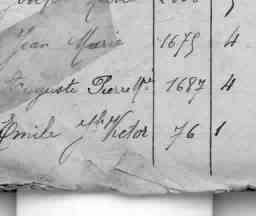 Jean Marie 1675 4
Auguste Pierre Mie 1687 4
Emile Jph Victor 76 1